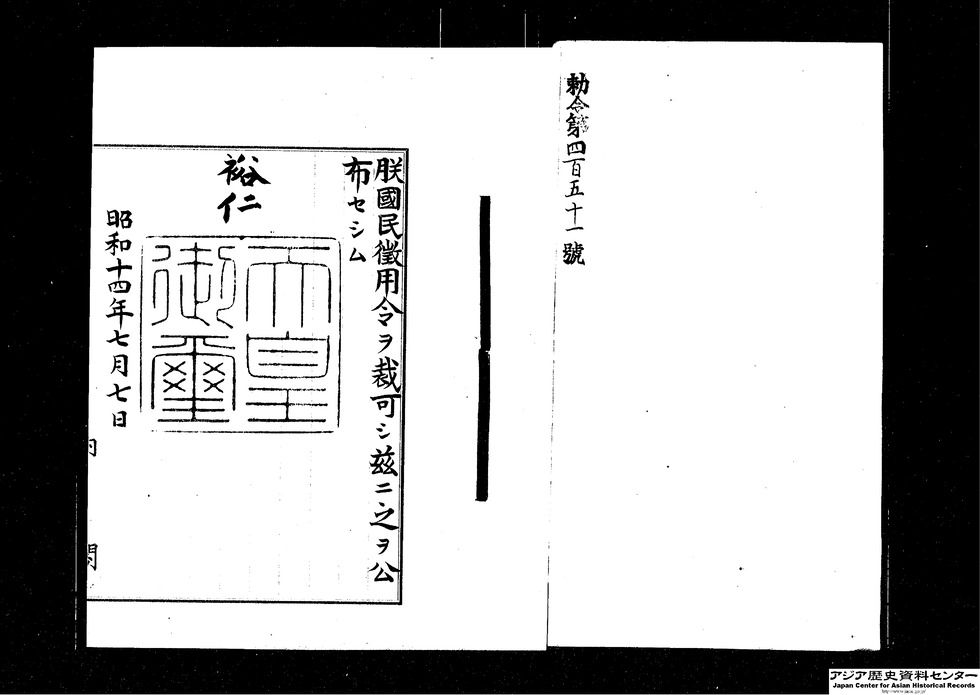 勅令第四百五十一號
朕國民徵用令ヲ裁可シ茲ニ之ヲ公
布セシム
裕仁
天皇
御璽
昭和十四年七月七日
内閣
アジア歴史資料センター
Japan Center for Asian Historical Records